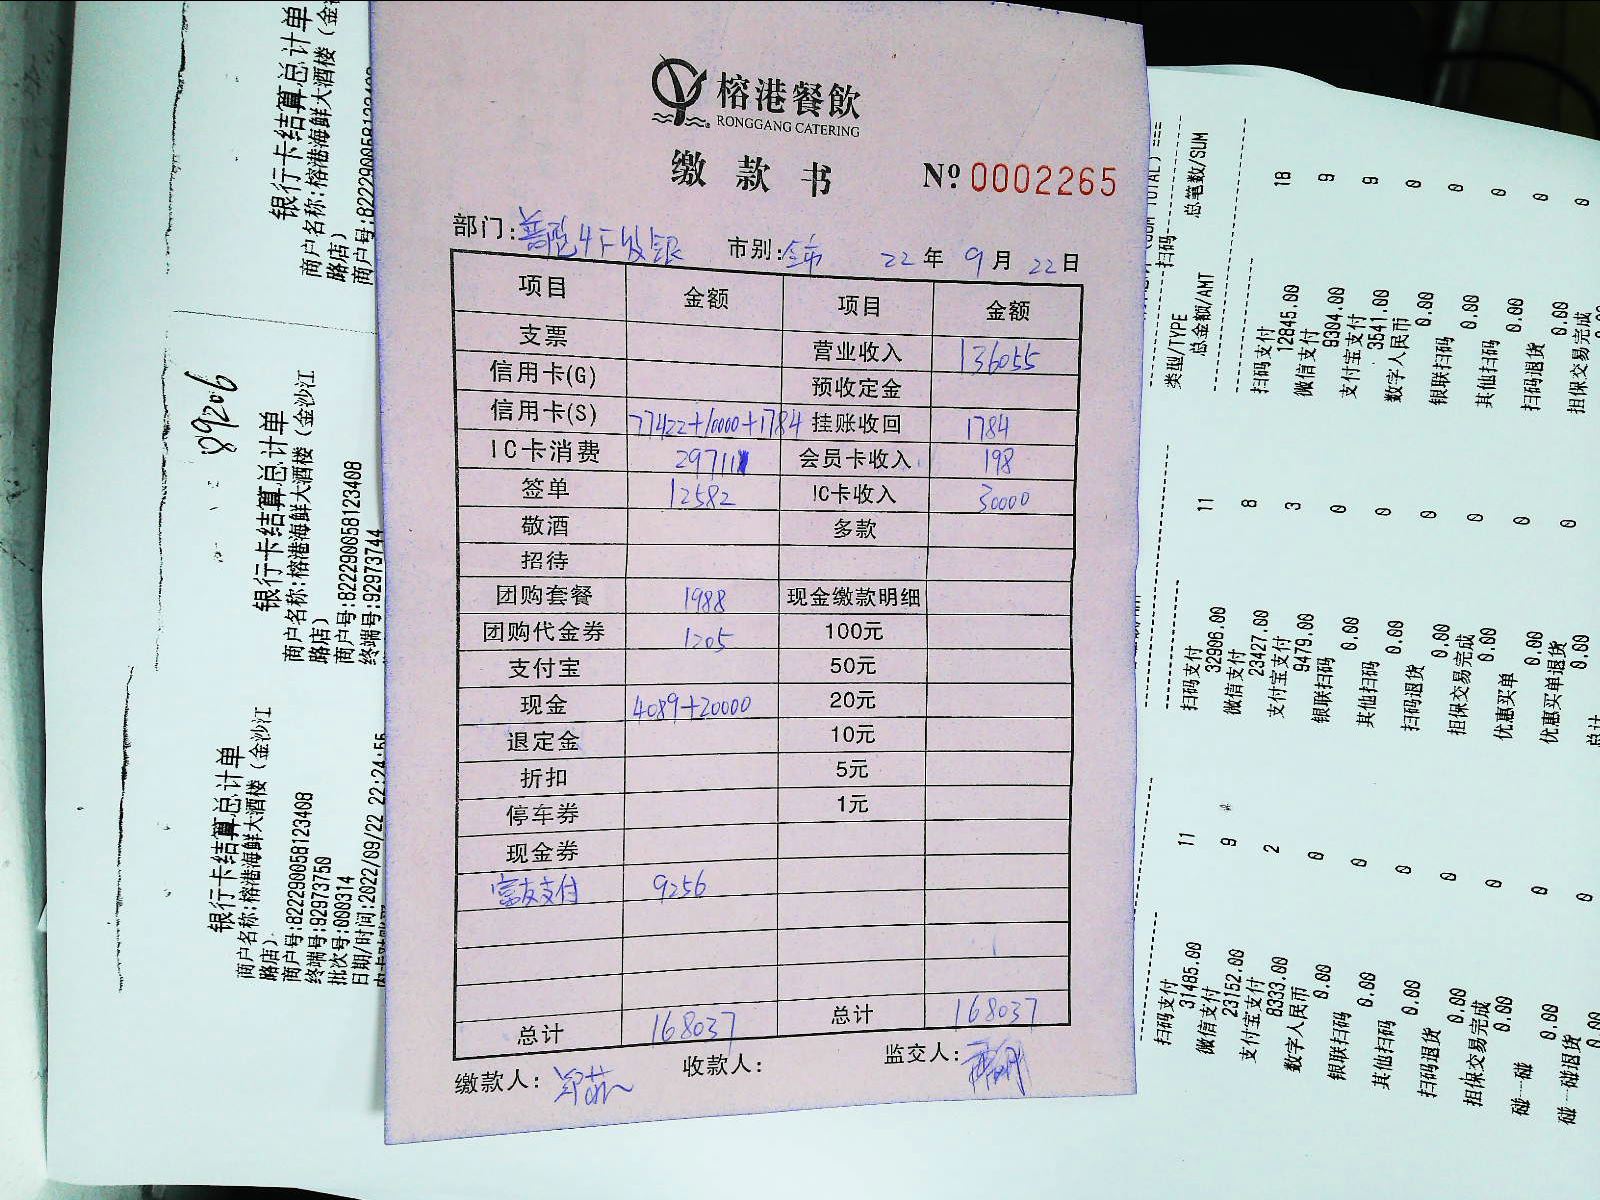 榕港餐飲
RONGGANG CATERING
缴款书 Nº 0002265
部门:普陀4F收银 市别:全市 22年9月22日
项目 金额 项目 金额
支票 营业收入 136055
信用卡(G) 预收定金
信用卡(S) 77422+10000+1784 挂账收回 1784
IC卡消费 29711 会员卡收入 198
签单 12582 IC卡收入 30000
敬酒 多款
招待
团购套餐 1988 现金缴款明细
团购代金券 1205 100元
支付宝 50元
现金 4089+20000 20元
退定金 10元
折扣 5元
停车券 1元
现金券
富友支付 9256
总计 168037 总计 168037
缴款人: 收款人: 监交人:
银行卡结算总计单
商户名称:榕港海鲜大酒楼(金
路店)
商户号:82229005812340
89206
银行卡结算总计单
商户名称:榕港海鲜大酒楼(金沙江
路店)
商户号:822290058123408
终端号:92973744
银行卡结算总计单
商户名称:榕港海鲜大酒楼(金沙江
路店)
商户号:822290058123408
终端号:92973750
批次号:000314
日期/时间:2022/09/22 22:24:55
扫码
类型/TYPE 总笔数/SUM
总金额/AMT
扫码支付 18
12845.00
微信支付 9
9304.00
支付宝支付 9
3541.00
数字人民币 0
0.00
银联扫码 0
0.00
其他扫码 0
0.00
扫码退货 0
0.00
担保交易完成 0
扫码支付 11
32906.00
微信支付 8
23427.00
支付宝支付 3
9479.00
银联扫码 0
0.00
其他扫码 0
0.00
扫码退货 0
0.00
担保交易完成 0
0.00
优惠买单 0
0.00
优惠买单退货 0
0.00
总计
扫码支付 11
31485.00
微信支付 9
23152.00
支付宝支付 2
8333.00
数字人民币 0
0.00
银联扫码 0
0.00
其他扫码 0
0.00
扫码退货 0
0.00
担保交易完成 0
0.00
碰一碰 0
0.00
碰一碰退货 0
0.00